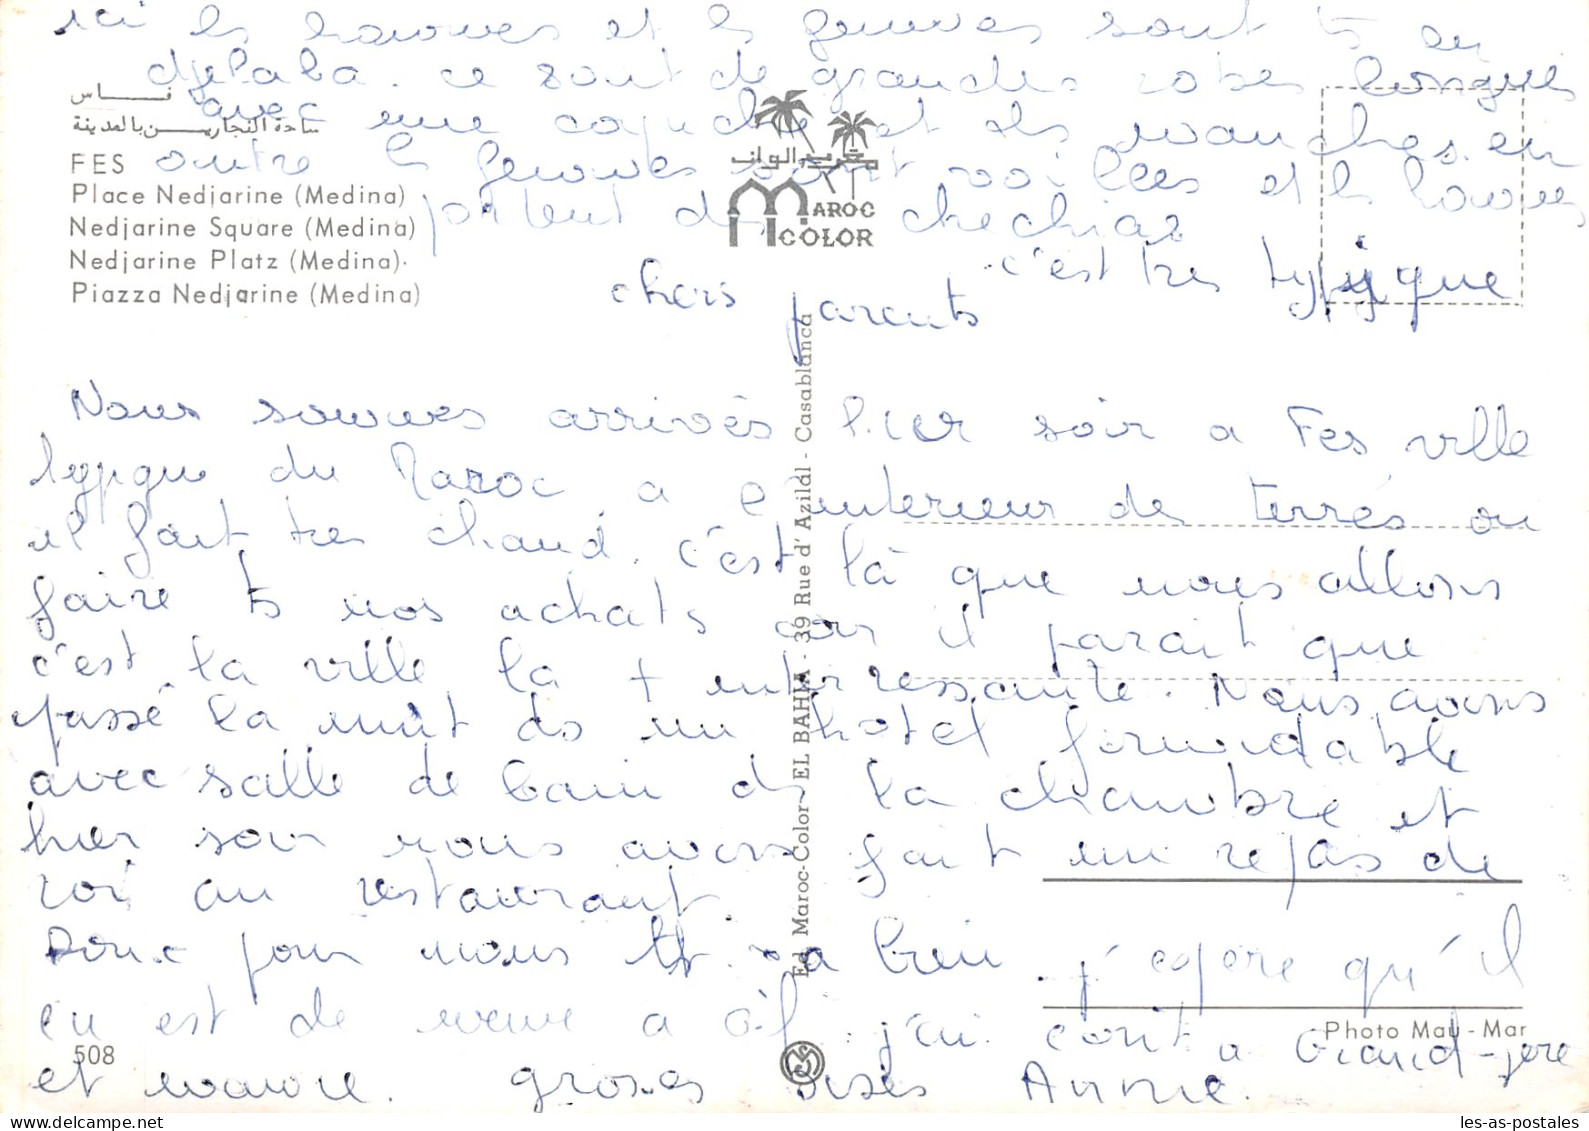 ici les hommes et les femmes sont ts en
djelaba. ce sont de grandes robes longues
avec une capuche et des manches. en
outre les femmes sont voilées et les hommes
portent des chechias
c'est tres typique
فاس
ساحة النجارين بالمدينة
FES
Place Nedjarine (Medina)
Nedjarine Square (Medina)
Nedjarine Platz (Medina)
Piazza Nedjarine (Medina)
MAROC
COLOR
chers parents
Nous sommes arrivés hier soir a Fes ville
typique du Maroc a l'interieur des terres ou
il fait tres chaud. c'est là que nous allons
faire ts nos achats car il parait que
c'est la ville la + interressante. Nous avons
passé la nuit ds un hotel formidable
avec salle de bain ds la chambre et
hier soir nous avons fait un repas de
roi au restaurant.
Donc pour nous tt va bien j'espere qu'il
en est de meme a . j'ai ecrit a Grand-pere
et mamie. grosses bises Annie.
Ed. Maroc-Color - EL BAHIA - 39 Rue d'Azilal - Casablanca
508
Photo Mau-Mar
les-as-postales